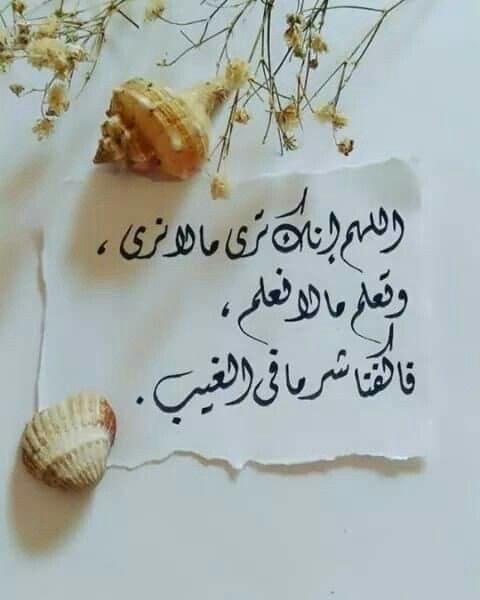 اللهم إنك ترى ما لا نرى ،
وتعلم ما لا نعلم ،
فاكفنا شر ما في الغيب .